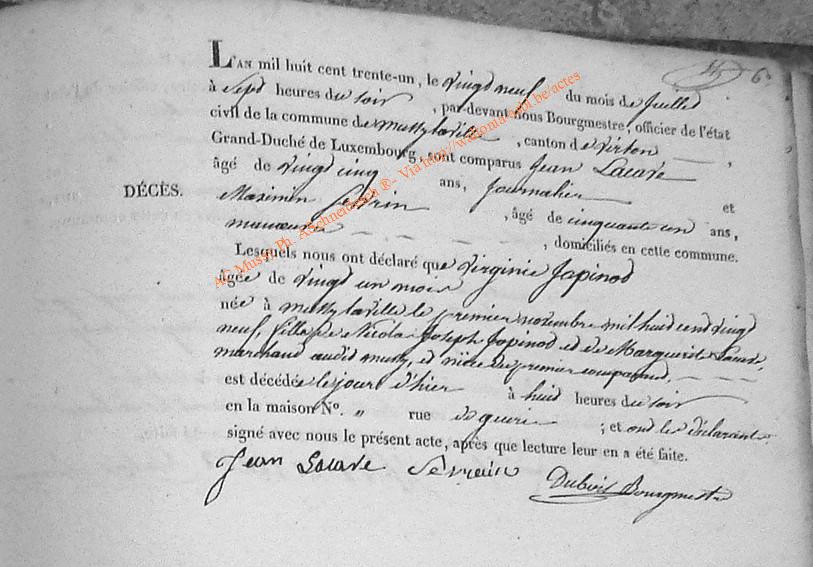 6
L'AN mil huit cent trente-un, le vingd neuf du mois de Juilled
à sepd heures du soir, par devant nous Bourgmestre, officier de l'état
civil de la commune de mussy laville, canton de virton
Grand-Duché de Luxembourg, sont comparus Jean Lacave
âgé de vingd cinq ans, Journalier et
DÉCÈS.
Maximin, âgé de cinquante un ans,
manœuvre, domiciliés en cette commune.
Lesquels nous ont déclaré que virginie Japinod
âgée de vingd un mois
née à mussy laville le premier novembre mil huid cend vingd
neuf, fille de Nicolas Joseph Japinod et de Marguerite Lacave,
marchand audid mussy, et nièce du premier comparand,
est décédée le jour d'hier à huid heures du soir
en la maison N°. " rue ; et ond les déclarants
signé avec nous le présent acte, après que lecture leur en a été faite.
Jean Lacave Dubois Bourgmestre
AC Mussy Ph. ASchneidesch ® - Via http://wallonia-bdbl.be/actes